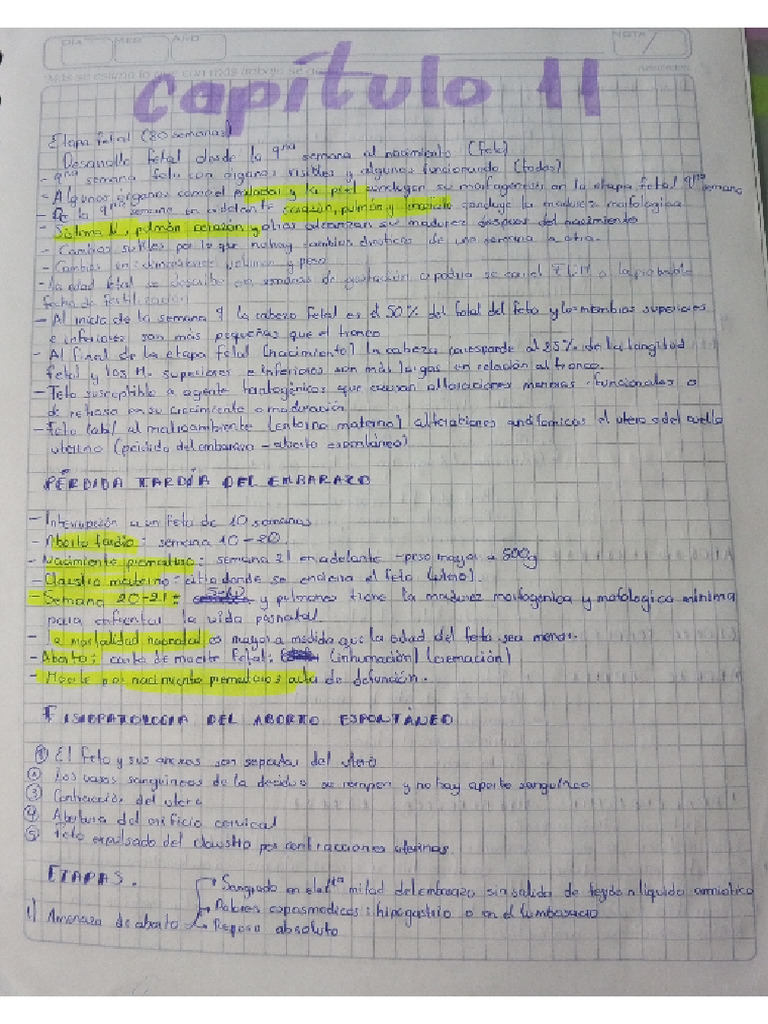 DIA MES AÑO NOTA
Capítulo 11
Etapa Fetal (30 semanas)
Desarrollo fetal desde la 9na semana al nacimiento (Feto)
- 9na semana feto con órganos visibles y algunos funcionando (todos)
- Algunos órganos como el paladar y la piel concluyen su morfogenesis en la etapa fetal 9na semana
- De la 9na semana en adelante corazón, pulmón y concluye la madurez morfologica
- Sistema N, pulmón corazón y otros alcanzan su madurez despues del nacimiento
- Cambios sutiles por lo que no hay cambios drasticos de una semana a otra.
- Cambios en: dimensiones, volumen y peso
- La edad fetal se describe en semanas de gestación a partir con el FUM o la probable
fecha de fertilización
- Al inicio de la semana 9 la cabeza fetal es el 50% del total del feto y los miembros superiores
e inferiores son más pequeñas que el tronco
- Al final de la etapa fetal (nacimiento) la cabeza corresponde al 25% de la longitud
fetal y los M. superiores e inferiores son más largas en relación al tronco.
- Feto susceptible a agente que causan alteraciones menores funcionales o
de retraso en su crecimiento o maduración
- Feto labil al matroambiente (entorno materno) alteraciones anatomicas el utero o del cuello
uterino (perdida del embarazo - aborto espontáneo)
PÉRDIDA TARDÍA DEL EMBARAZO
- Interrupción de un feto de 10 semanas
- Aborto tardio: semana 10 - 20
- Nacimiento prematuro: semana 21 en adelante - peso mayor a 500g
- Claustro materno: sitio donde se encierra el feto (utero).
- Semana 20-21: y pulmones tiene la madurez morfogenica y mofologica minima
para enfrentar la vida posnatal.
- La mortalidad neonatal es mayor a medida que la edad del feto sea menor.
- Aborto: carta de muerte Fetal: (inhumación) (cremación)
- Muerte por nacimiento prematuros acta de defunción.
FISIOPATOLOGIA DEL ABORTO ESPONTÁNEO
① El feto y sus anexos son separados del utero
② Los vasos sanguineos de la decidua se rompen y no hay aporte sanguíneo
③ Contracción del utero
④ Abertura del orificio cervical
⑤ Feto expulsado del claustro por contracciones uterinas.
ETAPAS.
- Sangrado en la 1ra mitad del embarazo sin salida de tejido n liquido amniotico
1) Amenaza de aborto - Dolores espasmodicos: hipogastrio o en el lumbosacro
- Reposo absoluto